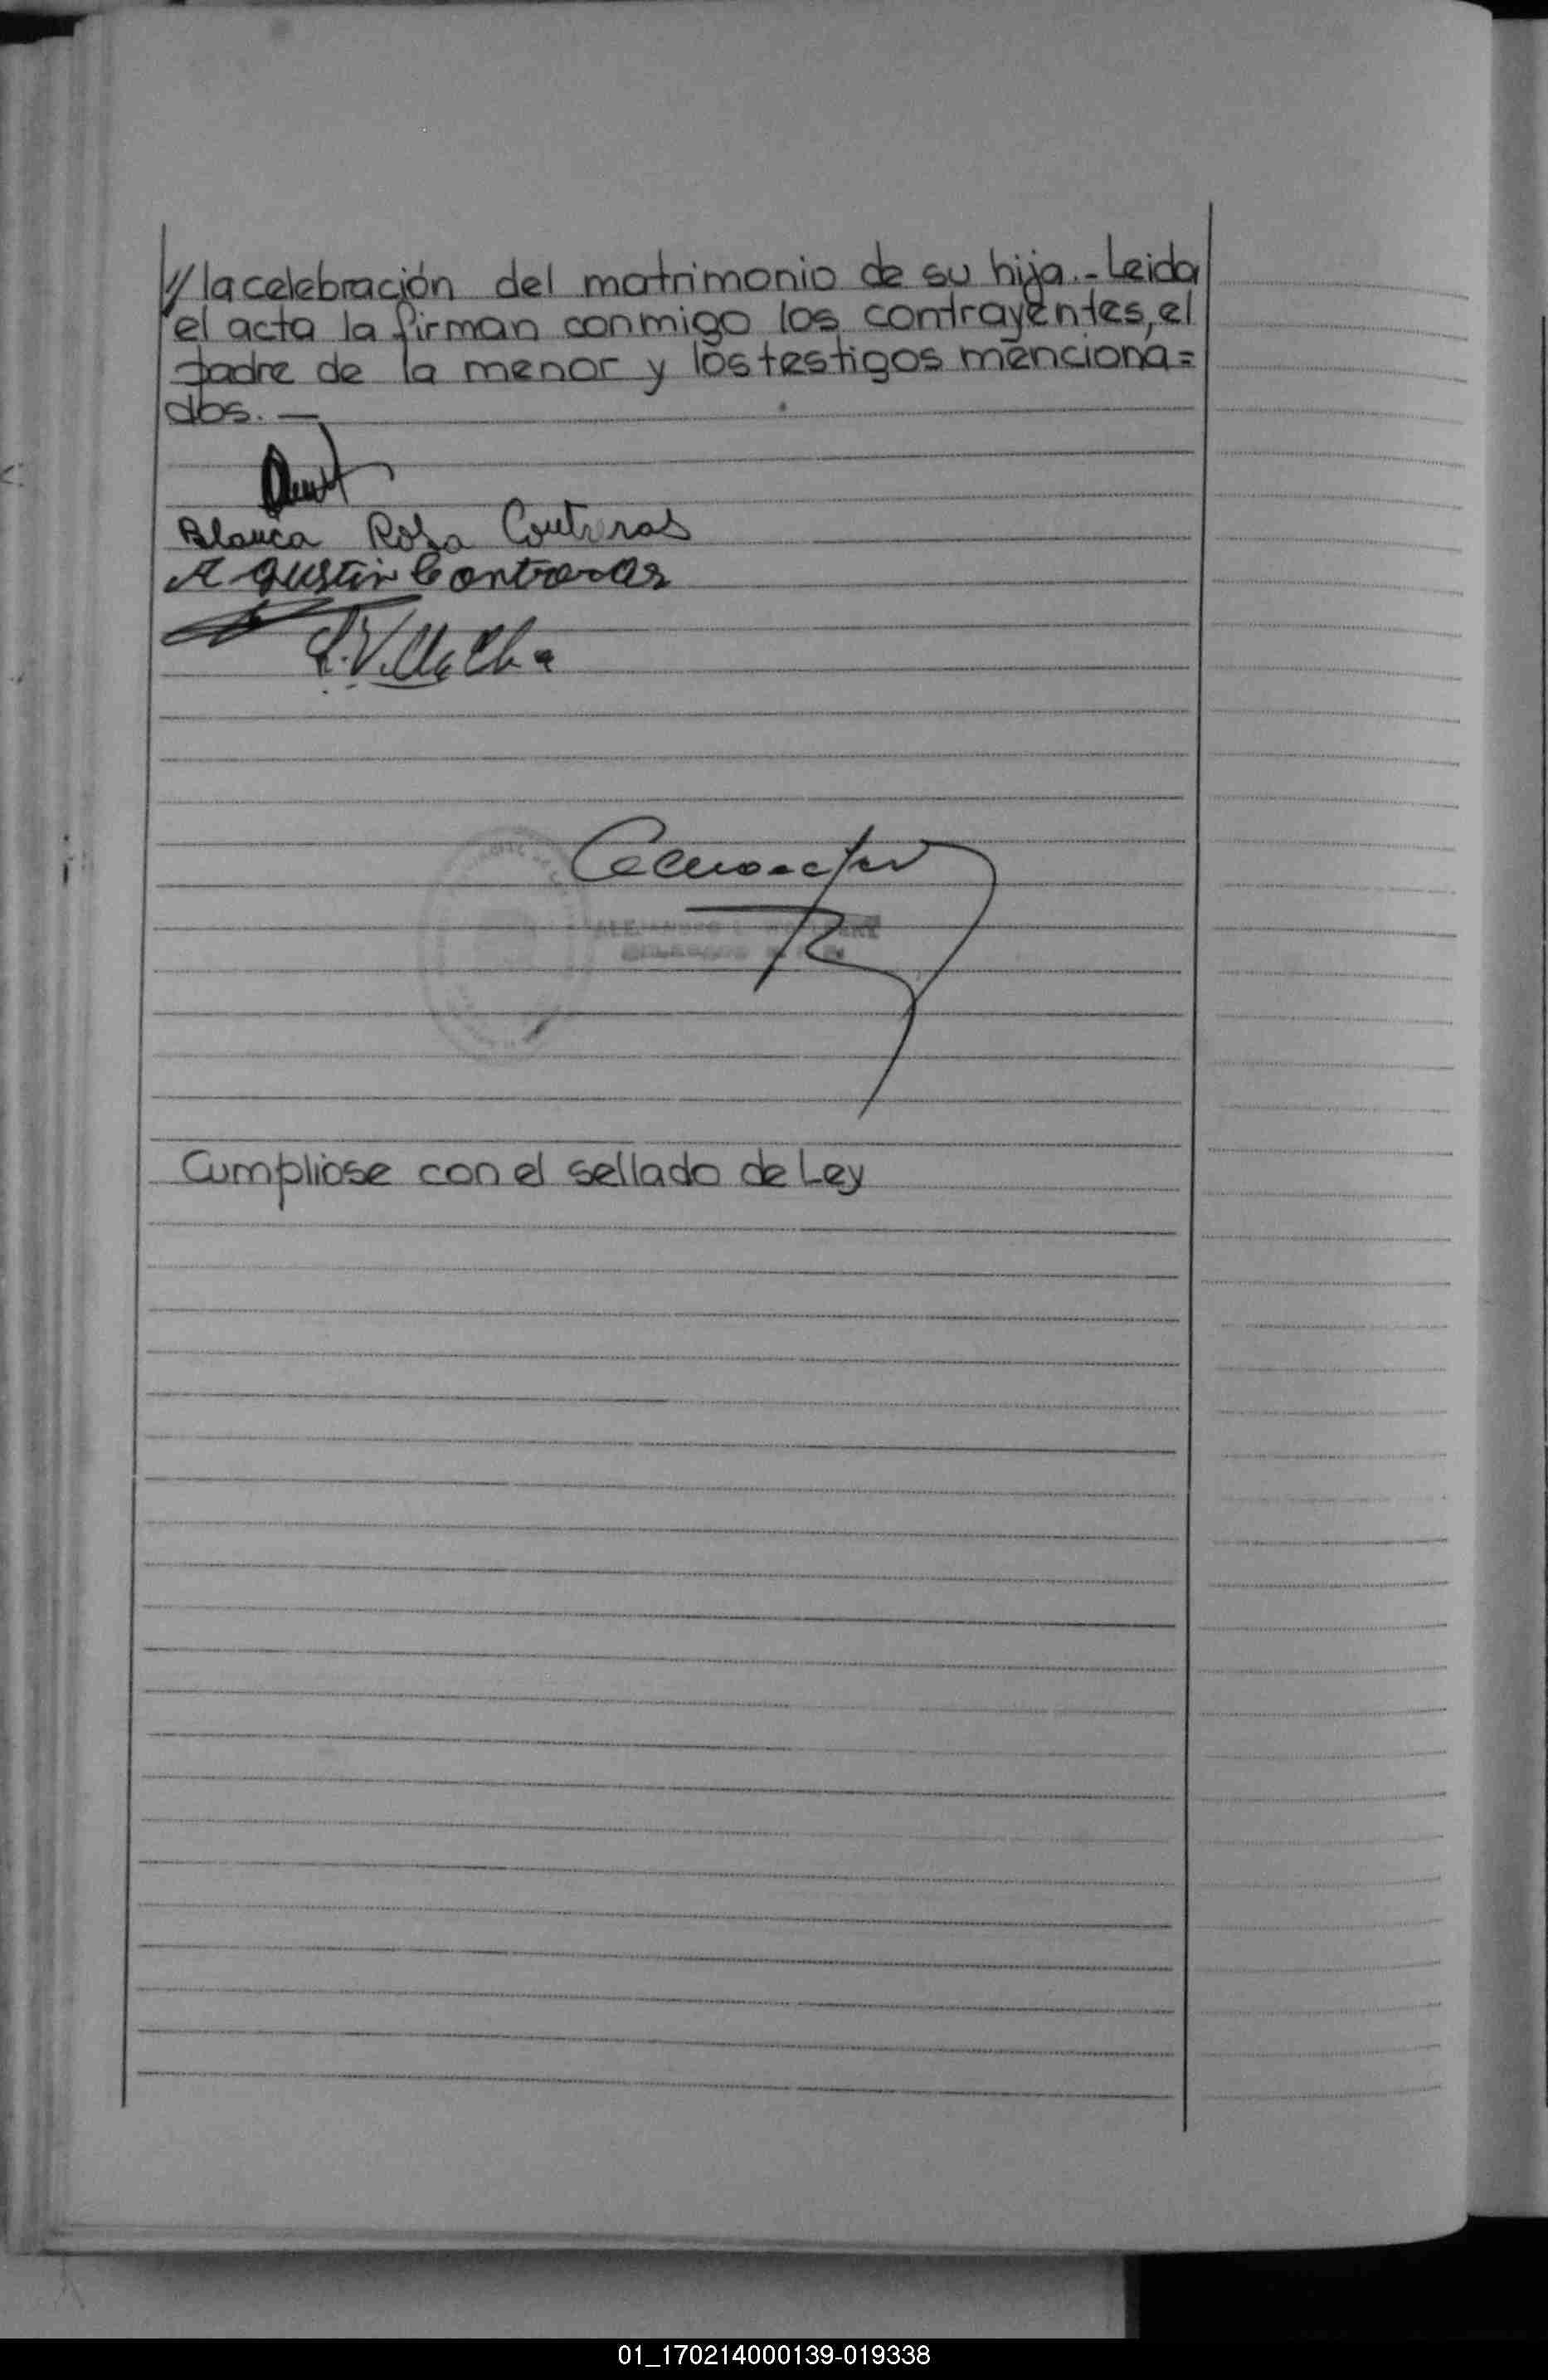 // la celebración del matrimonio de su hija.- Leida
el acta la firman conmigo los contrayentes, el
padre de la menor y los testigos menciona=
dos. —
Blanca Rosa Contreras
Agustin Contreras
Cumpliose con el sellado de Ley
01_170214000139-019338